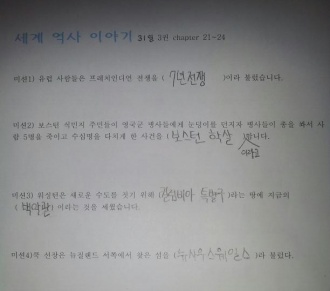 세계 역사 이야기 31월 3권 chapter 21~24
미션1) 유럽 사람들은 프렌치인디언 전쟁을 ( 7년전쟁 )이라 불렀습니다.
미션2) 보스턴 식민지 주민들이 영국군 병사들에게 눈덩이를 던지자 병사들이 총을 쏴서 사
람 5명을 죽이고 수십명을 다치게 한 사건을 (보스턴 학살 합니다.
이라고
미션3) 워싱턴은 새로운 수도를 짓기 위해 (컬럼비아 특별구)라는 땅에 지금의
(백악관) 이라는 것을 세웠습니다.
미션4)쿡 선장은 뉴질랜드 서쪽에서 찾은 섬을 (뉴사우스웨일스 )라 불렀다.